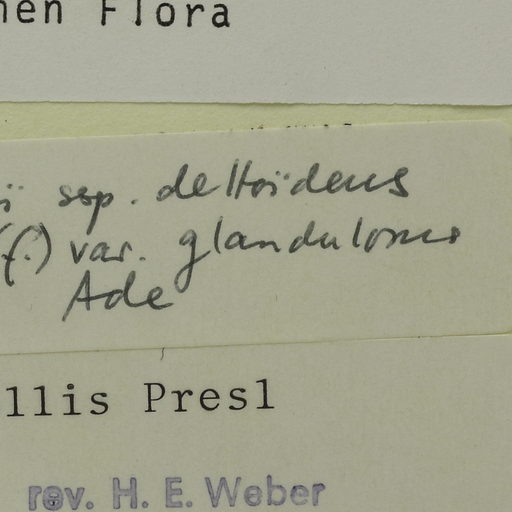 nen Flora
ï ssp. deltoïdeus
(f.) var. glandulosus
Ade
llis Presl
rev. H. E. Weber